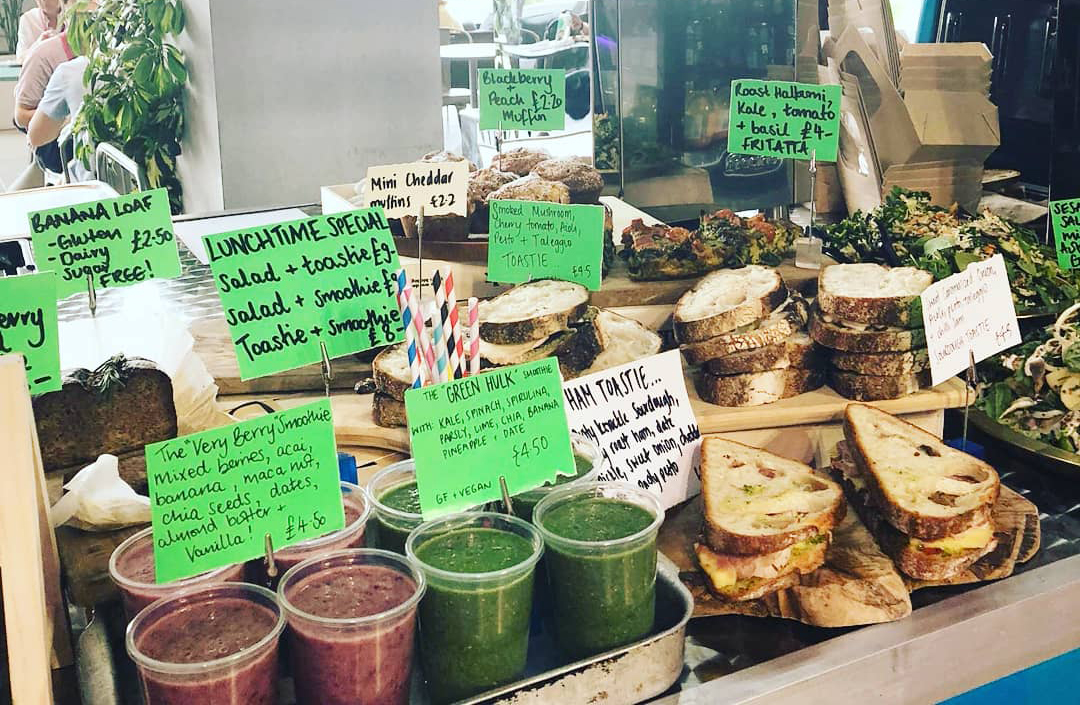 Blackberry
+ Peach £2.20
Muffin
Roast Halloumi,
Kale, tomato
+ basil £4-
FRITATTA
Mini Cheddar
muffins £2.2
BANANA LOAF
-Gluten £2.50
-Dairy
-Sugar
FREE!
LUNCHTIME SPECIAL
Salad + toastie £9-
Salad + Smoothie £
Toastie + Smoothie
£8-
Smoked Mushroom,
Cherry tomato, Aioli,
Pesto + Taleggio
TOASTIE £4.5
THE "GREEN HULK" SMOOTHIE
WITH: KALE, SPINACH, SPIRULINA,
PARSLY, LIME, CHIA, BANANA
PINEAPPLE + DATE
£4.50
GF + VEGAN
HAM TOASTIE...
Sourdough,
ham, date
sweet onion, chedda
pesto
The "Very Berry" Smoothie
mixed berries, acai,
banana, maca nut,
chia seeds, dates,
almond butter +
Vanilla! £4.50
Onion,
pesto
SOURDOUGH TOASTIE
erry
SESA
SAL
mi